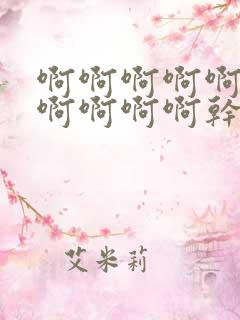 啊啊啊啊啊
啊啊啊啊幹
艾米莉